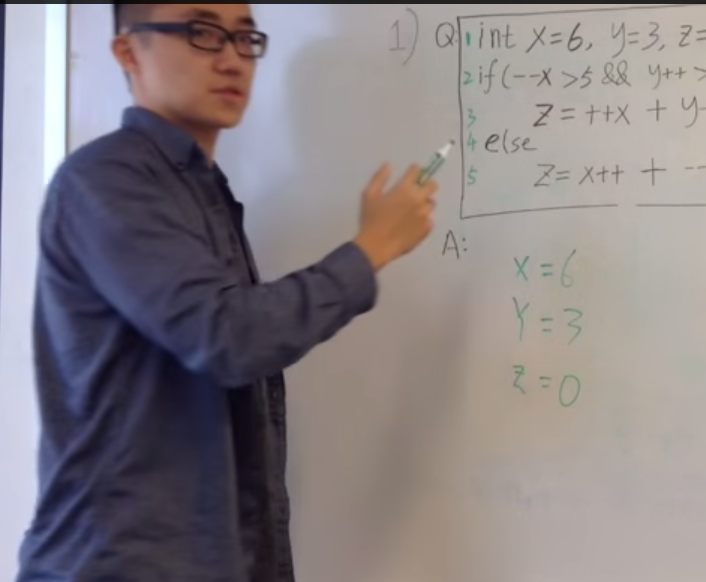 1) Q: 1 int x=6, y=3, z=
2 if(--x >5 && y++ >
3 z = ++x + y-
4 else
5 z= x++ + --
A:
x = 6
Y = 3
z = 0